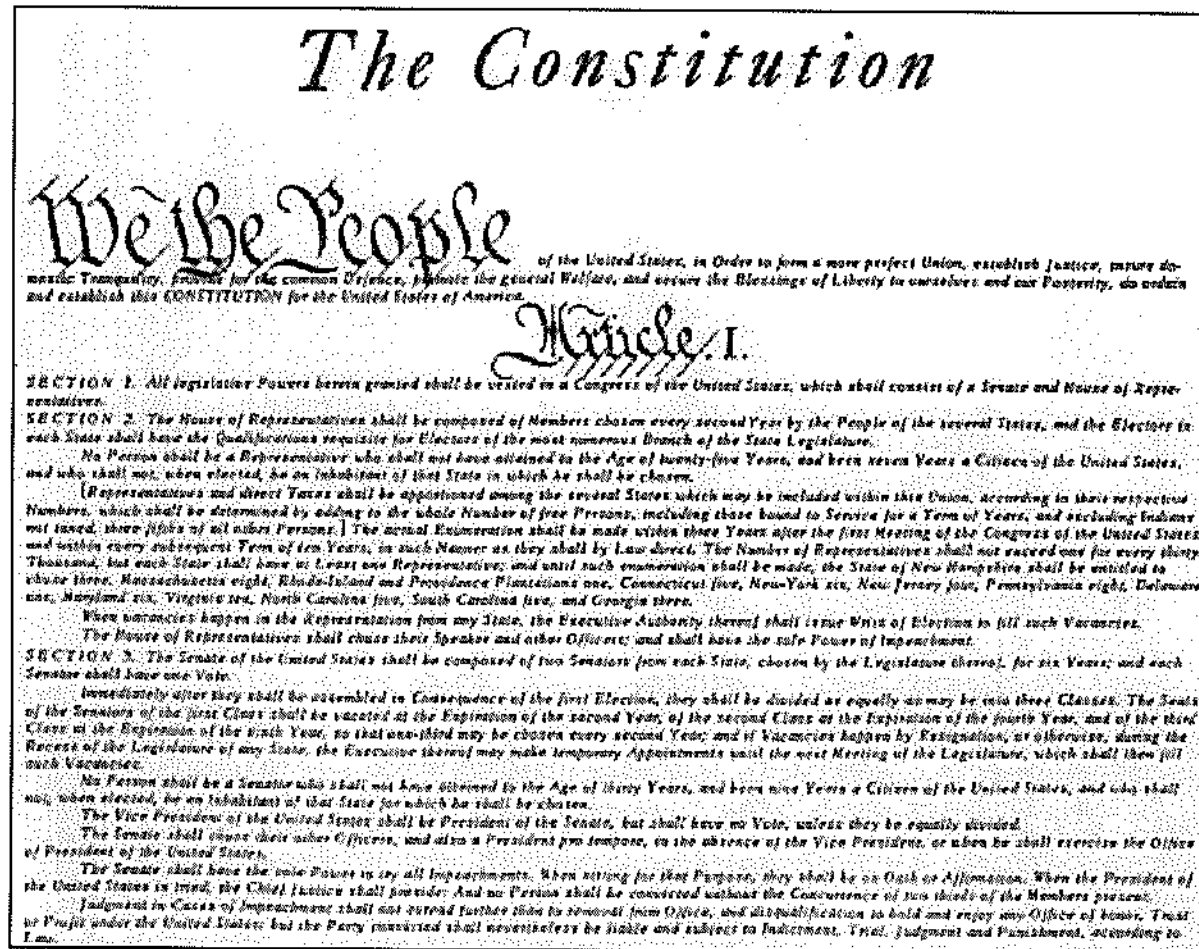 The Constitution
We the People of the United States, in Order to form a more perfect Union, establish Justice, insure do-
mestic Tranquility, provide for the common Defence, promote the general Welfare, and secure the Blessings of Liberty to ourselves and our Posterity, do ordain
and establish this CONSTITUTION for the United States of America.
Article. I.
SECTION 1. All legislative Powers herein granted shall be vested in a Congress of the United States, which shall consist of a Senate and House of Repre-
sentatives.
SECTION 2. The House of Representatives shall be composed of Members chosen every second Year by the People of the several States, and the Electors in
each State shall have the Qualifications requisite for Electors of the most numerous Branch of the State Legislature.
No Person shall be a Representative who shall not have attained to the Age of twenty-five Years, and been seven Years a Citizen of the United States,
and who shall not, when elected, be an Inhabitant of that State in which he shall be chosen.
[Representatives and direct Taxes shall be apportioned among the several States which may be included within this Union, according to their respective
Numbers, which shall be determined by adding to the whole Number of free Persons, including those bound to Service for a Term of Years, and excluding Indians
not taxed, three fifths of all other Persons.] The actual Enumeration shall be made within three Years after the first Meeting of the Congress of the United States
and within every subsequent Term of ten Years, in such Manner as they shall by Law direct. The Number of Representatives shall not exceed one for every thirty
Thousand, but each State shall have at Least one Representative; and until such enumeration shall be made, the State of New Hampshire shall be entitled to
chuse three, Massachusetts eight, Rhode-Island and Providence Plantations one, Connecticut five, New-York six, New Jersey four, Pennsylvania eight, Delaware
one, Maryland six, Virginia ten, North Carolina five, South Carolina five, and Georgia three.
When vacancies happen in the Representation from any State, the Executive Authority thereof shall issue Writs of Election to fill such Vacancies.
The House of Representatives shall chuse their Speaker and other Officers; and shall have the sole Power of Impeachment.
SECTION 3. The Senate of the United States shall be composed of two Senators from each State, chosen by the Legislature thereof, for six Years; and each
Senator shall have one Vote.
Immediately after they shall be assembled in Consequence of the first Election, they shall be divided as equally as may be into three Classes. The Seats
of the Senators of the first Class shall be vacated at the Expiration of the second Year, of the second Class at the Expiration of the fourth Year, and of the third
Class at the Expiration of the sixth Year, so that one-third may be chosen every second Year; and if Vacancies happen by Resignation, or otherwise, during the
Recess of the Legislature of any State, the Executive thereof may make temporary Appointments until the next Meeting of the Legislature, which shall then fill
such Vacancies.
No Person shall be a Senator who shall not have attained to the Age of thirty Years, and been nine Years a Citizen of the United States, and who shall
not, when elected, be an Inhabitant of that State for which he shall be chosen.
The Vice President of the United States shall be President of the Senate, but shall have no Vote, unless they be equally divided.
The Senate shall chuse their other Officers, and also a President pro tempore, in the absence of the Vice President, or when he shall exercise the Office
of President of the United States.
The Senate shall have the sole Power to try all Impeachments. When sitting for that Purpose, they shall be on Oath or Affirmation. When the President of
the United States is tried, the Chief Justice shall preside: And no Person shall be convicted without the Concurrence of two thirds of the Members present.
Judgment in Cases of Impeachment shall not extend further than to removal from Office, and disqualification to hold and enjoy any Office of honor, Trust
or Profit under the United States; but the Party convicted shall nevertheless be liable and subject to Indictment, Trial, Judgment and Punishment, according to
Law.